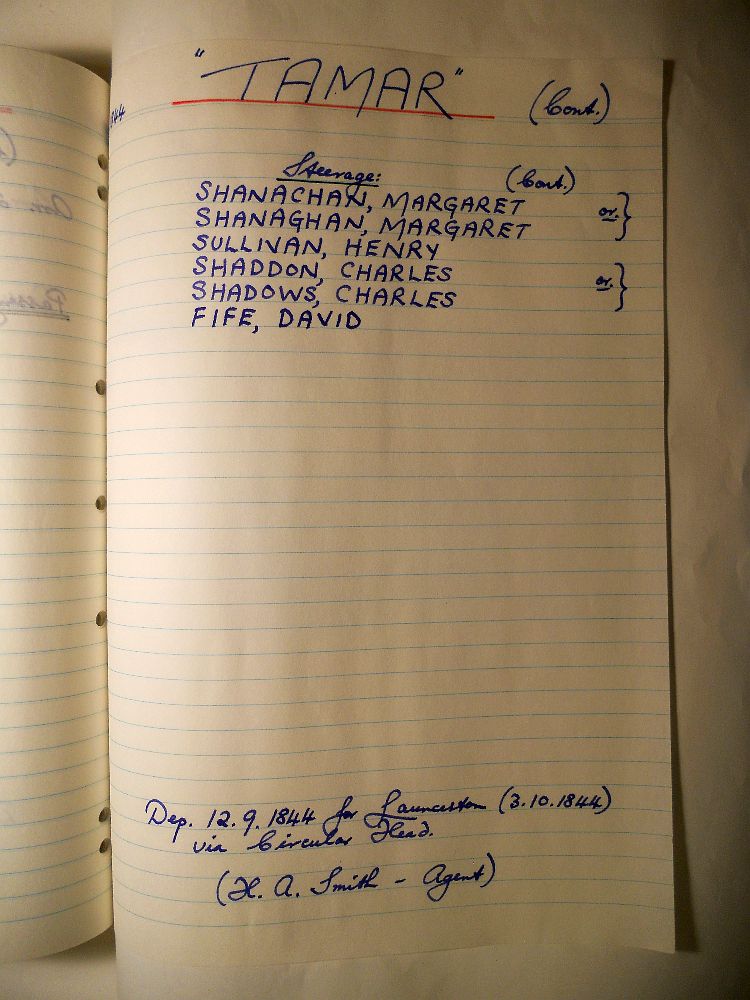 "TAMAR" (Cont.)
Steerage: (Cont.)
SHANACHAN, MARGARET or. }
SHANAGHAN, MARGARET
SULLIVAN, HENRY
SHADDON, CHARLES or. }
SHADOWS, CHARLES
FIFE, DAVID
Dep. 12.9.1844 for Launceston (3.10.1844)
via Circular Head.
(H. A. Smith - Agent)